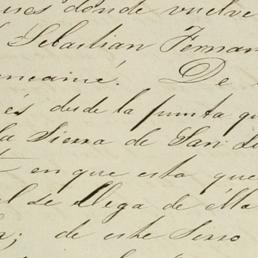 donde vuelve
Sebastian Fernan
De
es desde la punta qu
la Sierra de San
en que esta que
el se llega de ella
de este Serro